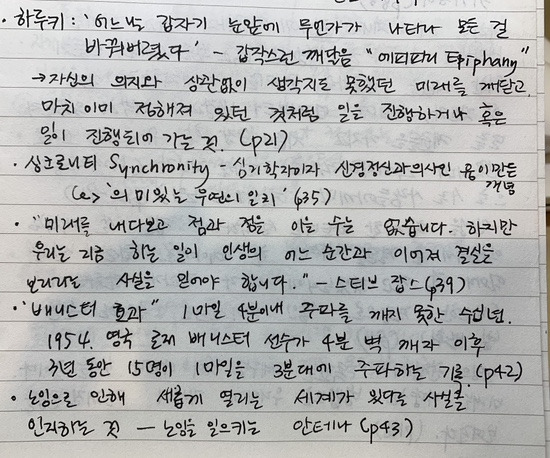 • 하루키 : '어느날 갑자기 눈앞에 무언가가 나타나 모든 걸
바꿔버렸다' - 갑작스런 깨달음 "에피파니 Epiphany"
→ 자신의 의지와 상관없이 생각지도 못했던 미래를 깨닫고,
마치 이미 정해져 있던 것처럼 일을 진행하거나 혹은
일이 진행되어 가는 것. (p21)
• 싱크로니티 Synchronity - 심리학자이자 신경정신과의사인 융이 만든
개념
'의미있는 우연의 일치' (p35)
• "미래를 내다보고 점과 점을 이을 수는 없습니다. 하지만
우리는 지금 하는 일이 인생의 어느 순간과 이어져 결실을
보리라는 사실을 믿어야 합니다." - 스티브 잡스 (p39)
• "배니스터 효과" 1마일 4분이내 주파를 깨지 못한 수백년.
1954. 영국 로저 배니스터 선수가 4분 벽 깨자 이후
3년 동안 15명이 1마일을 3분대에 주파하는 기록. (p42)
• 노잉으로 인해 새롭게 열리는 세계가 있다는 사실을
인지하는 것 - 노잉을 일으키는 안테나 (p43)